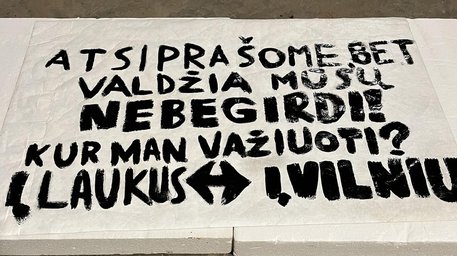 ATSIPRAŠOME, BET
VALDŽIA MŪSŲ
NEBEGIRDI!
KUR MAN VAŽIUOTI?
Į LAUKUS ↔ Į VILNIŲ